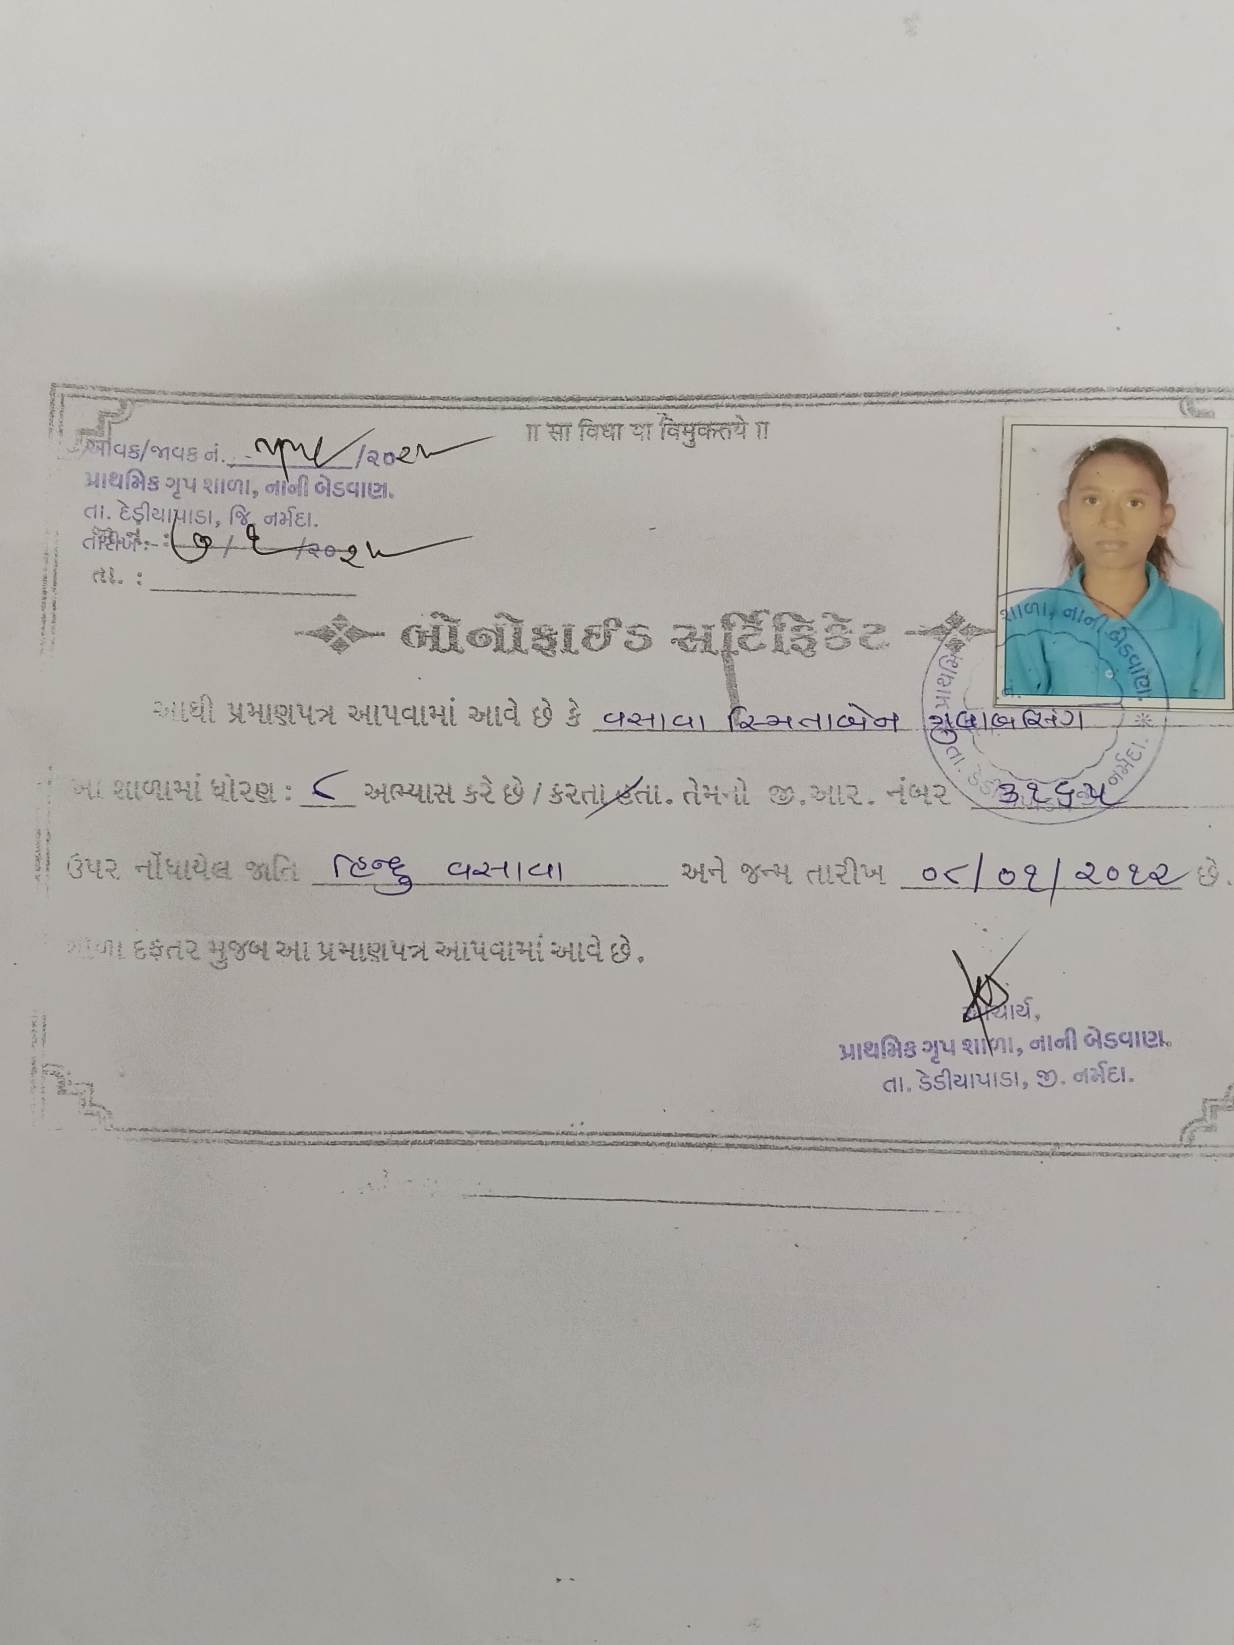 ॥ सा विद्या या विमुक्तये ॥
આવક/જાવક નં. /૨૦૨૫
પ્રાથમિક ગૃપ શાળા, નાની બેડવાણ.
તા. દેડીયાપાડા, જિ. નર્મદા.
તારીખ:- ૭/૧/૨૦૨૫
તા. :
બોનોફાઈડ સર્ટિફિકેટ
આથી પ્રમાણપત્ર આપવામાં આવે છે કે વસાવા સ્મિતાબેન ગુલાબસિંગ
આ શાળામાં ધોરણ : ૮ અભ્યાસ કરે છે / કરતા હતા. તેમનો જી.આર. નંબર ૩૧૬૫
ઉપર નોંધાયેલ જાતિ હિન્દુ વસાવા અને જન્મ તારીખ ૦૮/૦૧/૨૦૧૨ છે.
શાળા દફતર મુજબ આ પ્રમાણપત્ર આપવામાં આવે છે.
આચાર્ય,
પ્રાથમિક ગૃપ શાળા, નાની બેડવાણ.
તા. ડેડીયાપાડા, જી. નર્મદા.